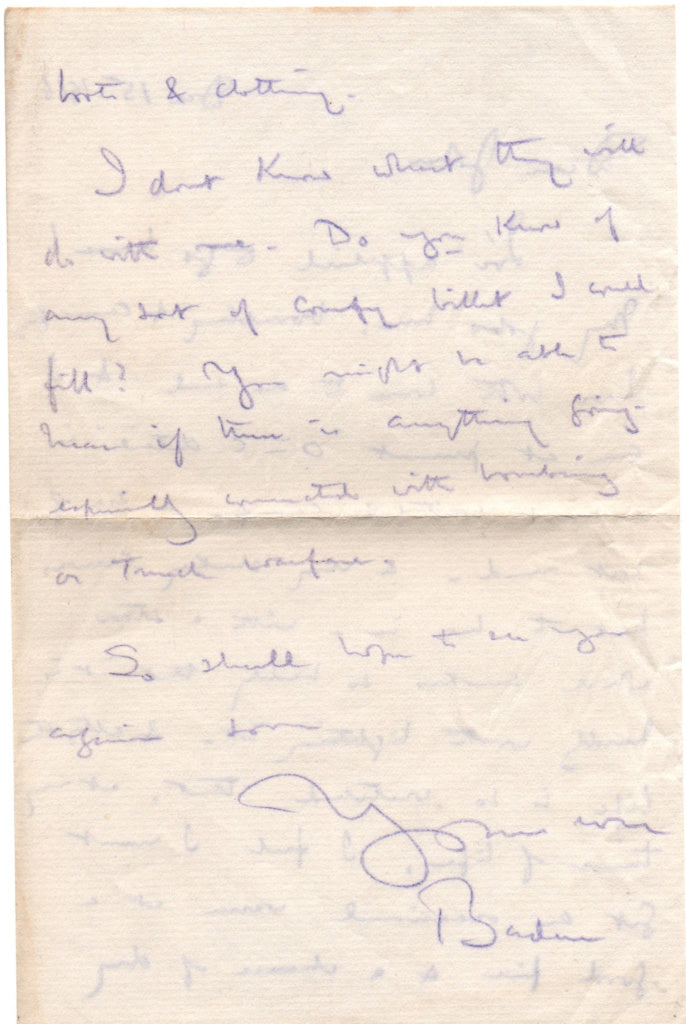 boots & clothing.
I dont know what they will
do with me. Do you know of
any sort of comfy billet I could
fill? You might be able to
hear if there is anything going
especially connected with bombing
or Trench warfare.
So shall hope to see you
again soon
Yours ever
Baden